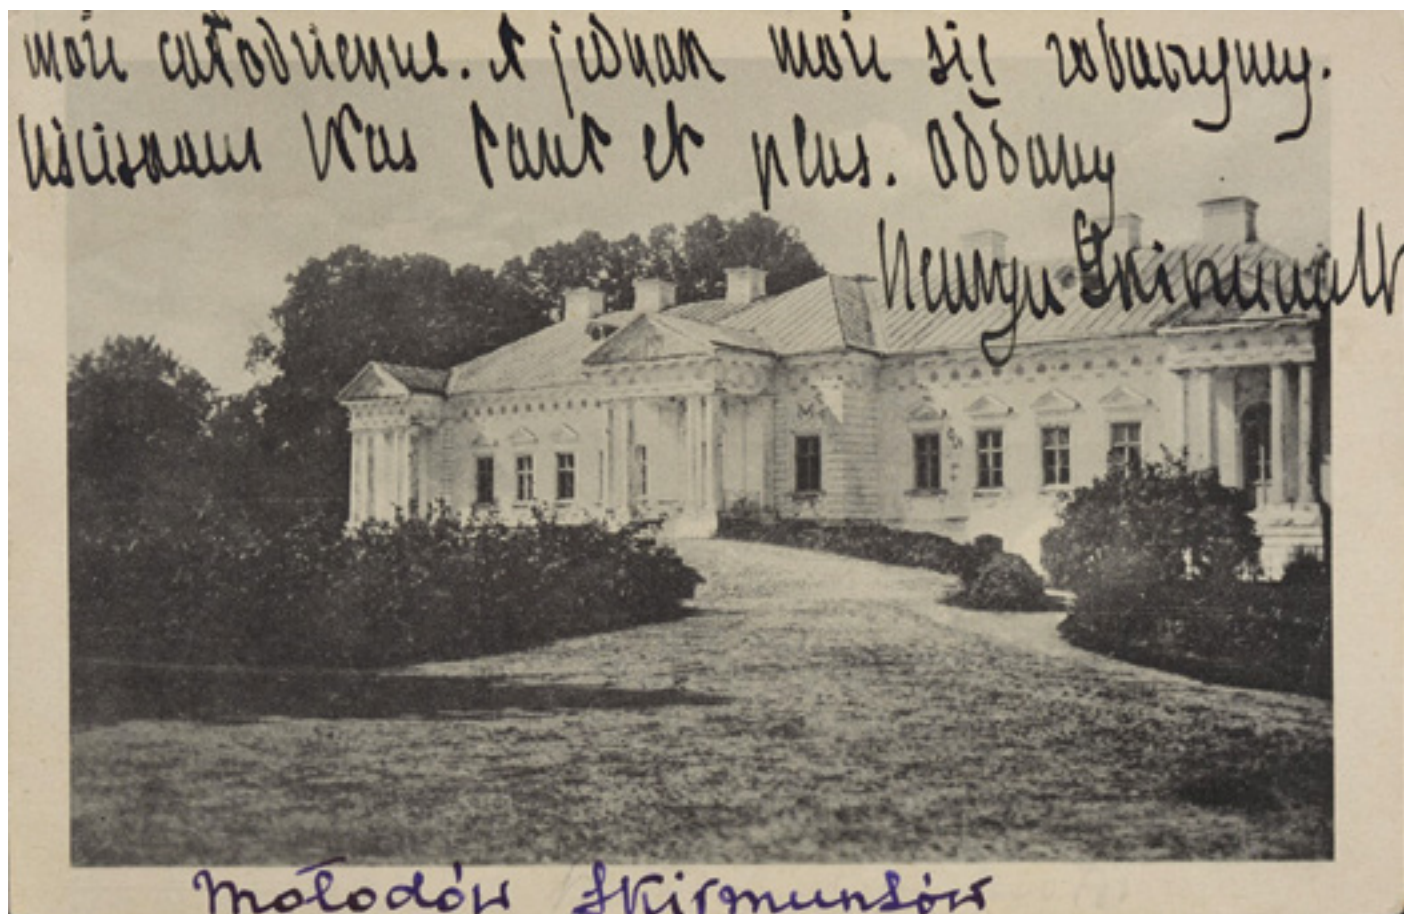 może całodzienne. A jednak może się zobaczymy.
Uściskam Was tant et plus. Oddany
Henryk Skirmuntt
Mołodów Skirmuntów